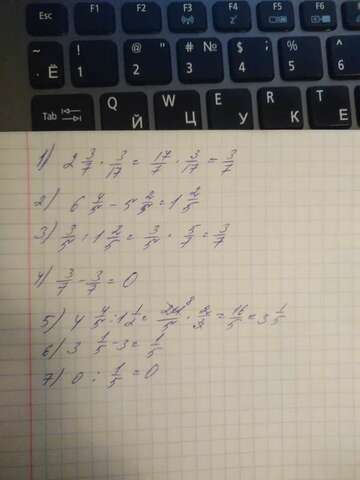 Esc F1 F2 F3 F4 F5 F6
~ ` Ё ! 1 @ " 2 # № 3 $ ; 4 % : 5 ^ 6
Tab Q Й W Ц E У R К T Е
1) 2 3/7 · 3/17 = 17/7 · 3/17 = 3/7
2) 6 4/5 - 5 2/5 = 1 2/5
3) 3/5 : 1 2/5 = 3/5 · 5/7 = 3/7
4) 3/7 - 3/7 = 0
5) 4 4/5 : 1 1/2 = 24 8/5 · 2/3 = 16/5 = 3 1/5
6) 3 1/5 - 3 = 1/5
7) 0 : 1/5 = 0